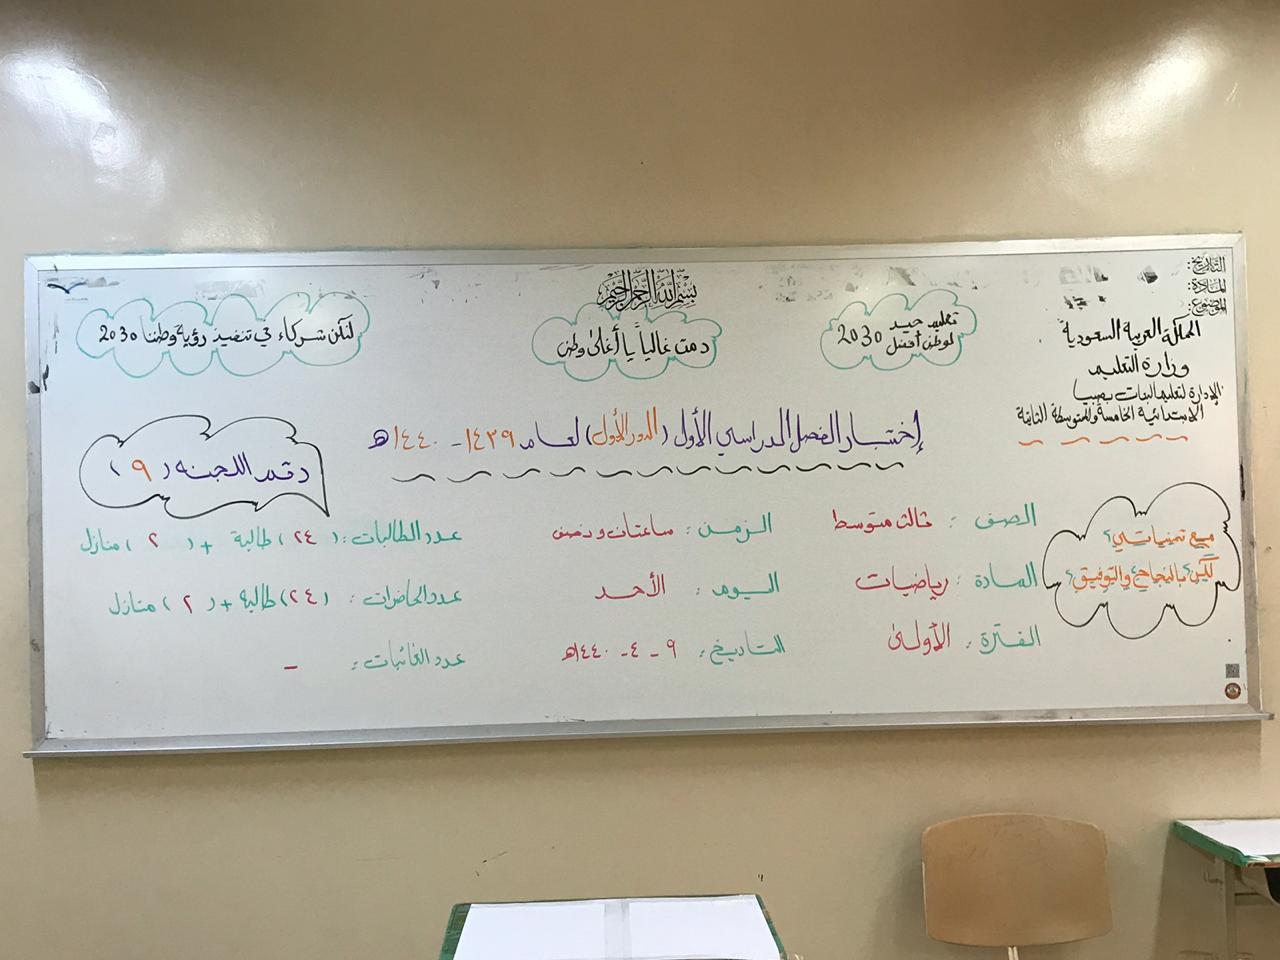 بسم الله الرحمن الرحيم
التاريخ:
المادة:
الموضوع:
المملكة العربية السعودية
وزارة التعليم
الإدارة لتعليم البنات بصبيا
الابتدائية الخامسة والمتوسطة الثانية
تعليم جيد
لوطن أفضل 2030
دمت غالياً يا أغلى وطن
لنكن شركاء في تنفيذ رؤية وطننا 2030
إختبار الفصل الدراسي الأول (الدور الأول) لعام ١٤٣٩ - ١٤٤٠هـ
رقم اللجنة (٩)
الصف: ثالث متوسط
الزمن: ساعتان ونصف
عدد الطالبات: (٢٤) طالبة + (٢) منازل
المادة: رياضيات
اليوم: الأحد
عدد الحاضرات: (٢٤) طالبة + (٢) منازل
الفترة: الأولى
التاريخ: ٩ - ٤ - ١٤٤٠هـ
عدد الغائبات: -
مع تمنياتي
لكن بالنجاح والتوفيق